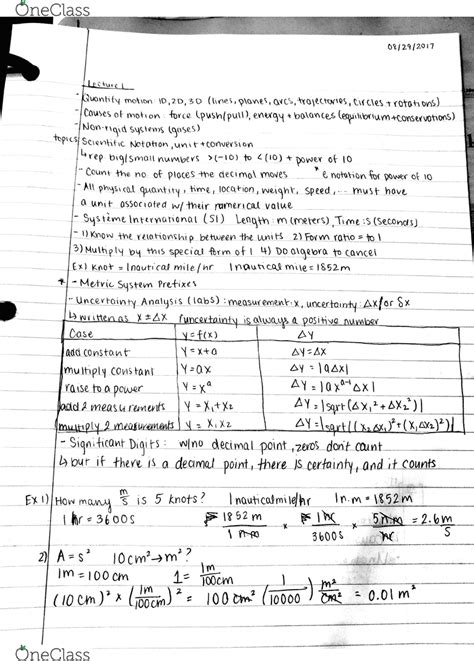 OneClass
08/29/2017
Lecture 1
- Quantify motion 1D, 2D, 3D (lines, planes, arcs, trajectories, circles + rotations)
- Causes of motion: force (push/pull), energy + balances (equilibrium + conservations)
- Non-rigid systems (gases)
topics Scientific Notation, unit + conversion
↳ rep big/small numbers >(-10) to <(10) + power of 10
- Count the no. of places the decimal moves * e notation for power of 10
- All physical quantity, time, location, weight, speed, ... must have
a unit associated w/ their numerical value
- Système International (SI) Length: m (meters), Time: s (seconds)
- 1) Know the relationship between the units 2) Form ratio = to 1
3) Multiply by this special form of 1 4) Do algebra to cancel
Ex) Knot = 1 nautical mile/hr 1 nautical mile = 1852 m
* - Metric System Prefixes
- Uncertainty Analysis (labs): measurement: x, uncertainty: Δx/or δx
↳ written as x ± Δx uncertainty is always a positive number
Case y = f(x) Δy
add constant y = x + a Δy = Δx
multiply constant y = ax Δy = |aΔx|
raise to a power y = xᵃ Δy = |axᵃ⁻¹Δx|
add 2 measurements y = x₁ + x₂ Δy = |sqrt(Δx₁² + Δx₂²)|
multiply 2 measurements y = x₁x₂ Δy = |sqrt((x₂Δx₁)² + (x₁Δx₂)²)|
- Significant Digits: w/no decimal point, zeros don't count
↳ but if there is a decimal point, there is certainty, and it counts
Ex 1) How many m/s is 5 knots? 1 nautical mile/hr 1 n.m = 1852 m
1 hr = 3600s 1852 m / 1 n.m × 1 hr / 3600s × 5 n.m / hr = 2.6 m/s
2) A = s² 10 cm² → m²?
1m = 100 cm 1 = 1m/100cm
(10 cm)² × (1m/100cm)² = 100 cm² (1/10000) m²/cm² = 0.01 m²
OneClass